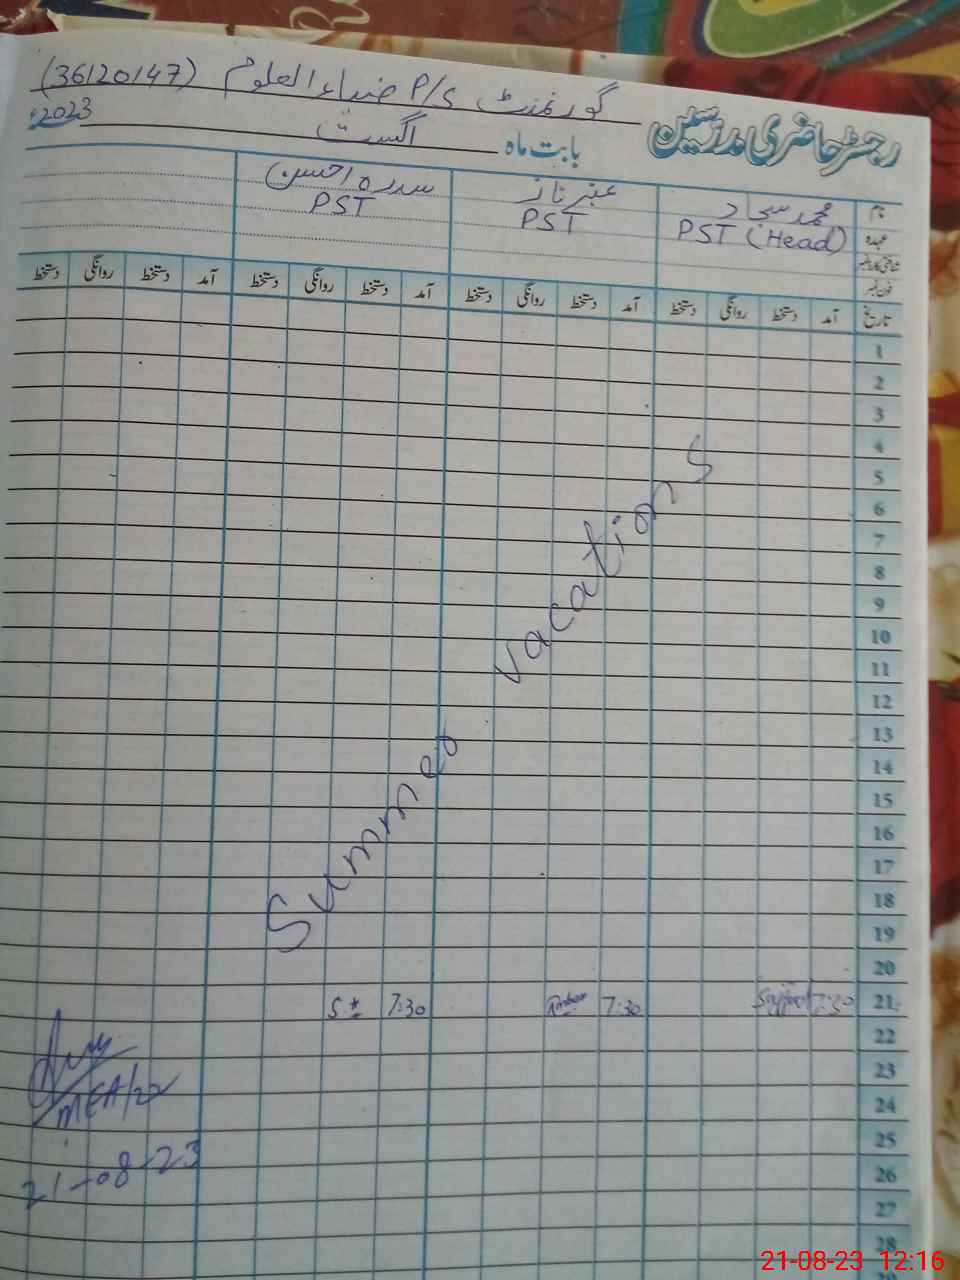 گورنمنٹ P/S ضیاء العلوم (36120147)
رجسٹر حاضری مدرسین
بابت ماہ اگست 2023ء
نام محمد سجاد عنبر ناز سدرہ احسن
عہدہ PST (Head) PST PST
شناختی کارڈ نمبر
فون نمبر
تاریخ آمد دستخط روانگی دستخط آمد دستخط روانگی دستخط آمد دستخط روانگی دستخط آمد دستخط روانگی دستخط
1
2
3
4
5
6
7
8
9
10
11
12
13
14
15
16
17
18
19
20
Summer vacations
21 7:30 Sajjad 7:30 Amber 7:30
22
23
24
25
26
27
28
MEA/22
21-08-23
21-08-23 12:16